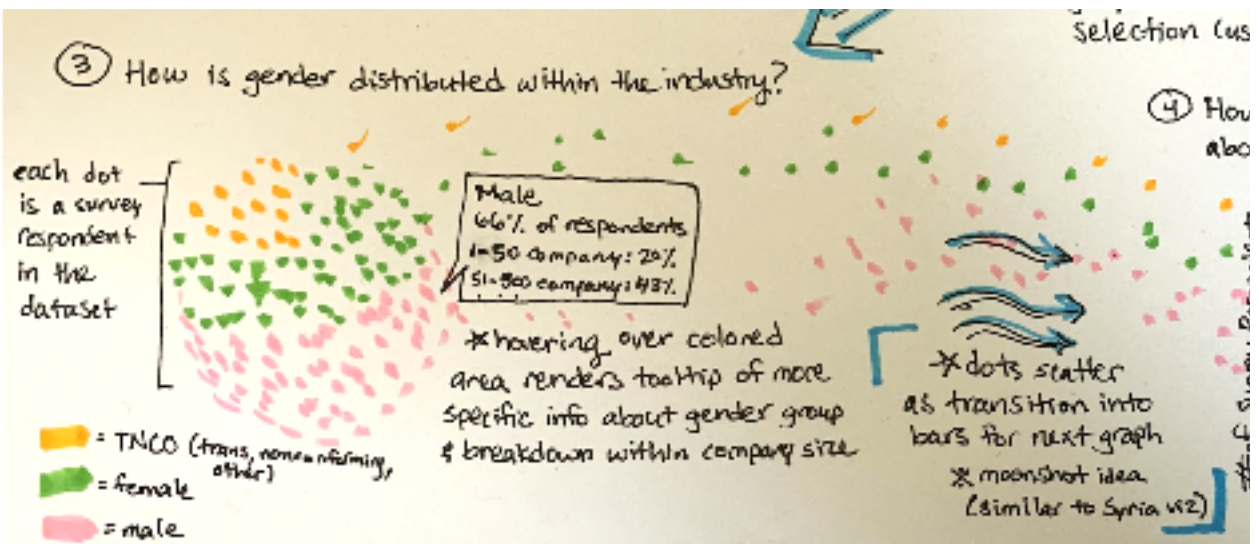 selection (us
③ How is gender distributed within the industry?
④ How
abo
each dot
is a survey
respondent
in the
dataset
Male
66% of respondents
1-50 company: 20%
51-500 company: 43%
*hovering over colored
area renders tooltip of more
specific info about gender group
& breakdown within company size
*dots scatter
as transition into
bars for next graph
* moonshot idea
(similar to Syria viz)
= TNCO (trans, nonconforming,
other)
= female
= male